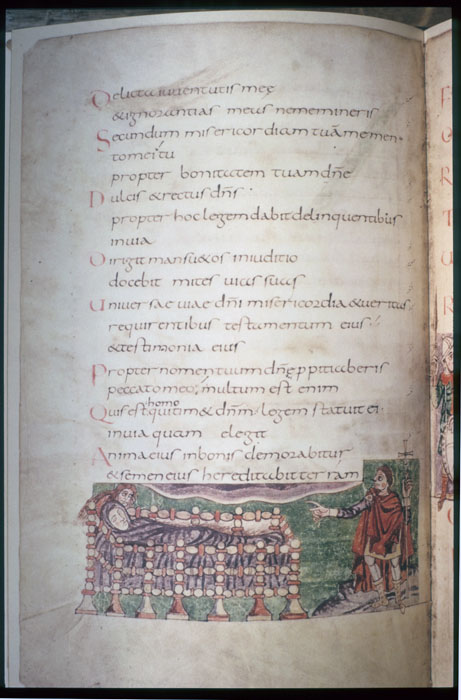 Delicta iuuentutis meę
& ignorantias meas nememineris
Secundum misericordiam tuā memen
tomei tu
propter bonitatem tuam dn̄e
Dulcis & rectus dn̄s
propter hoc legem dabit delinquentibus
inuia
Dirigit mansu&os iniuditio
docebit mites uias suas
Uniuersae uiae dn̄i misericordia & ueritas
requirentibus testamentum eius
& testimonia eius
Propter nomen tuum dn̄e p̱pitiaberis
peccato meo, multum est enim
Quis est homo qui tim& dn̄m legem statuit ei
inuia quam elegit
Anima eius inbonis demorabitur
& semen eius hereditabit terram
F
O
R
T
U
R